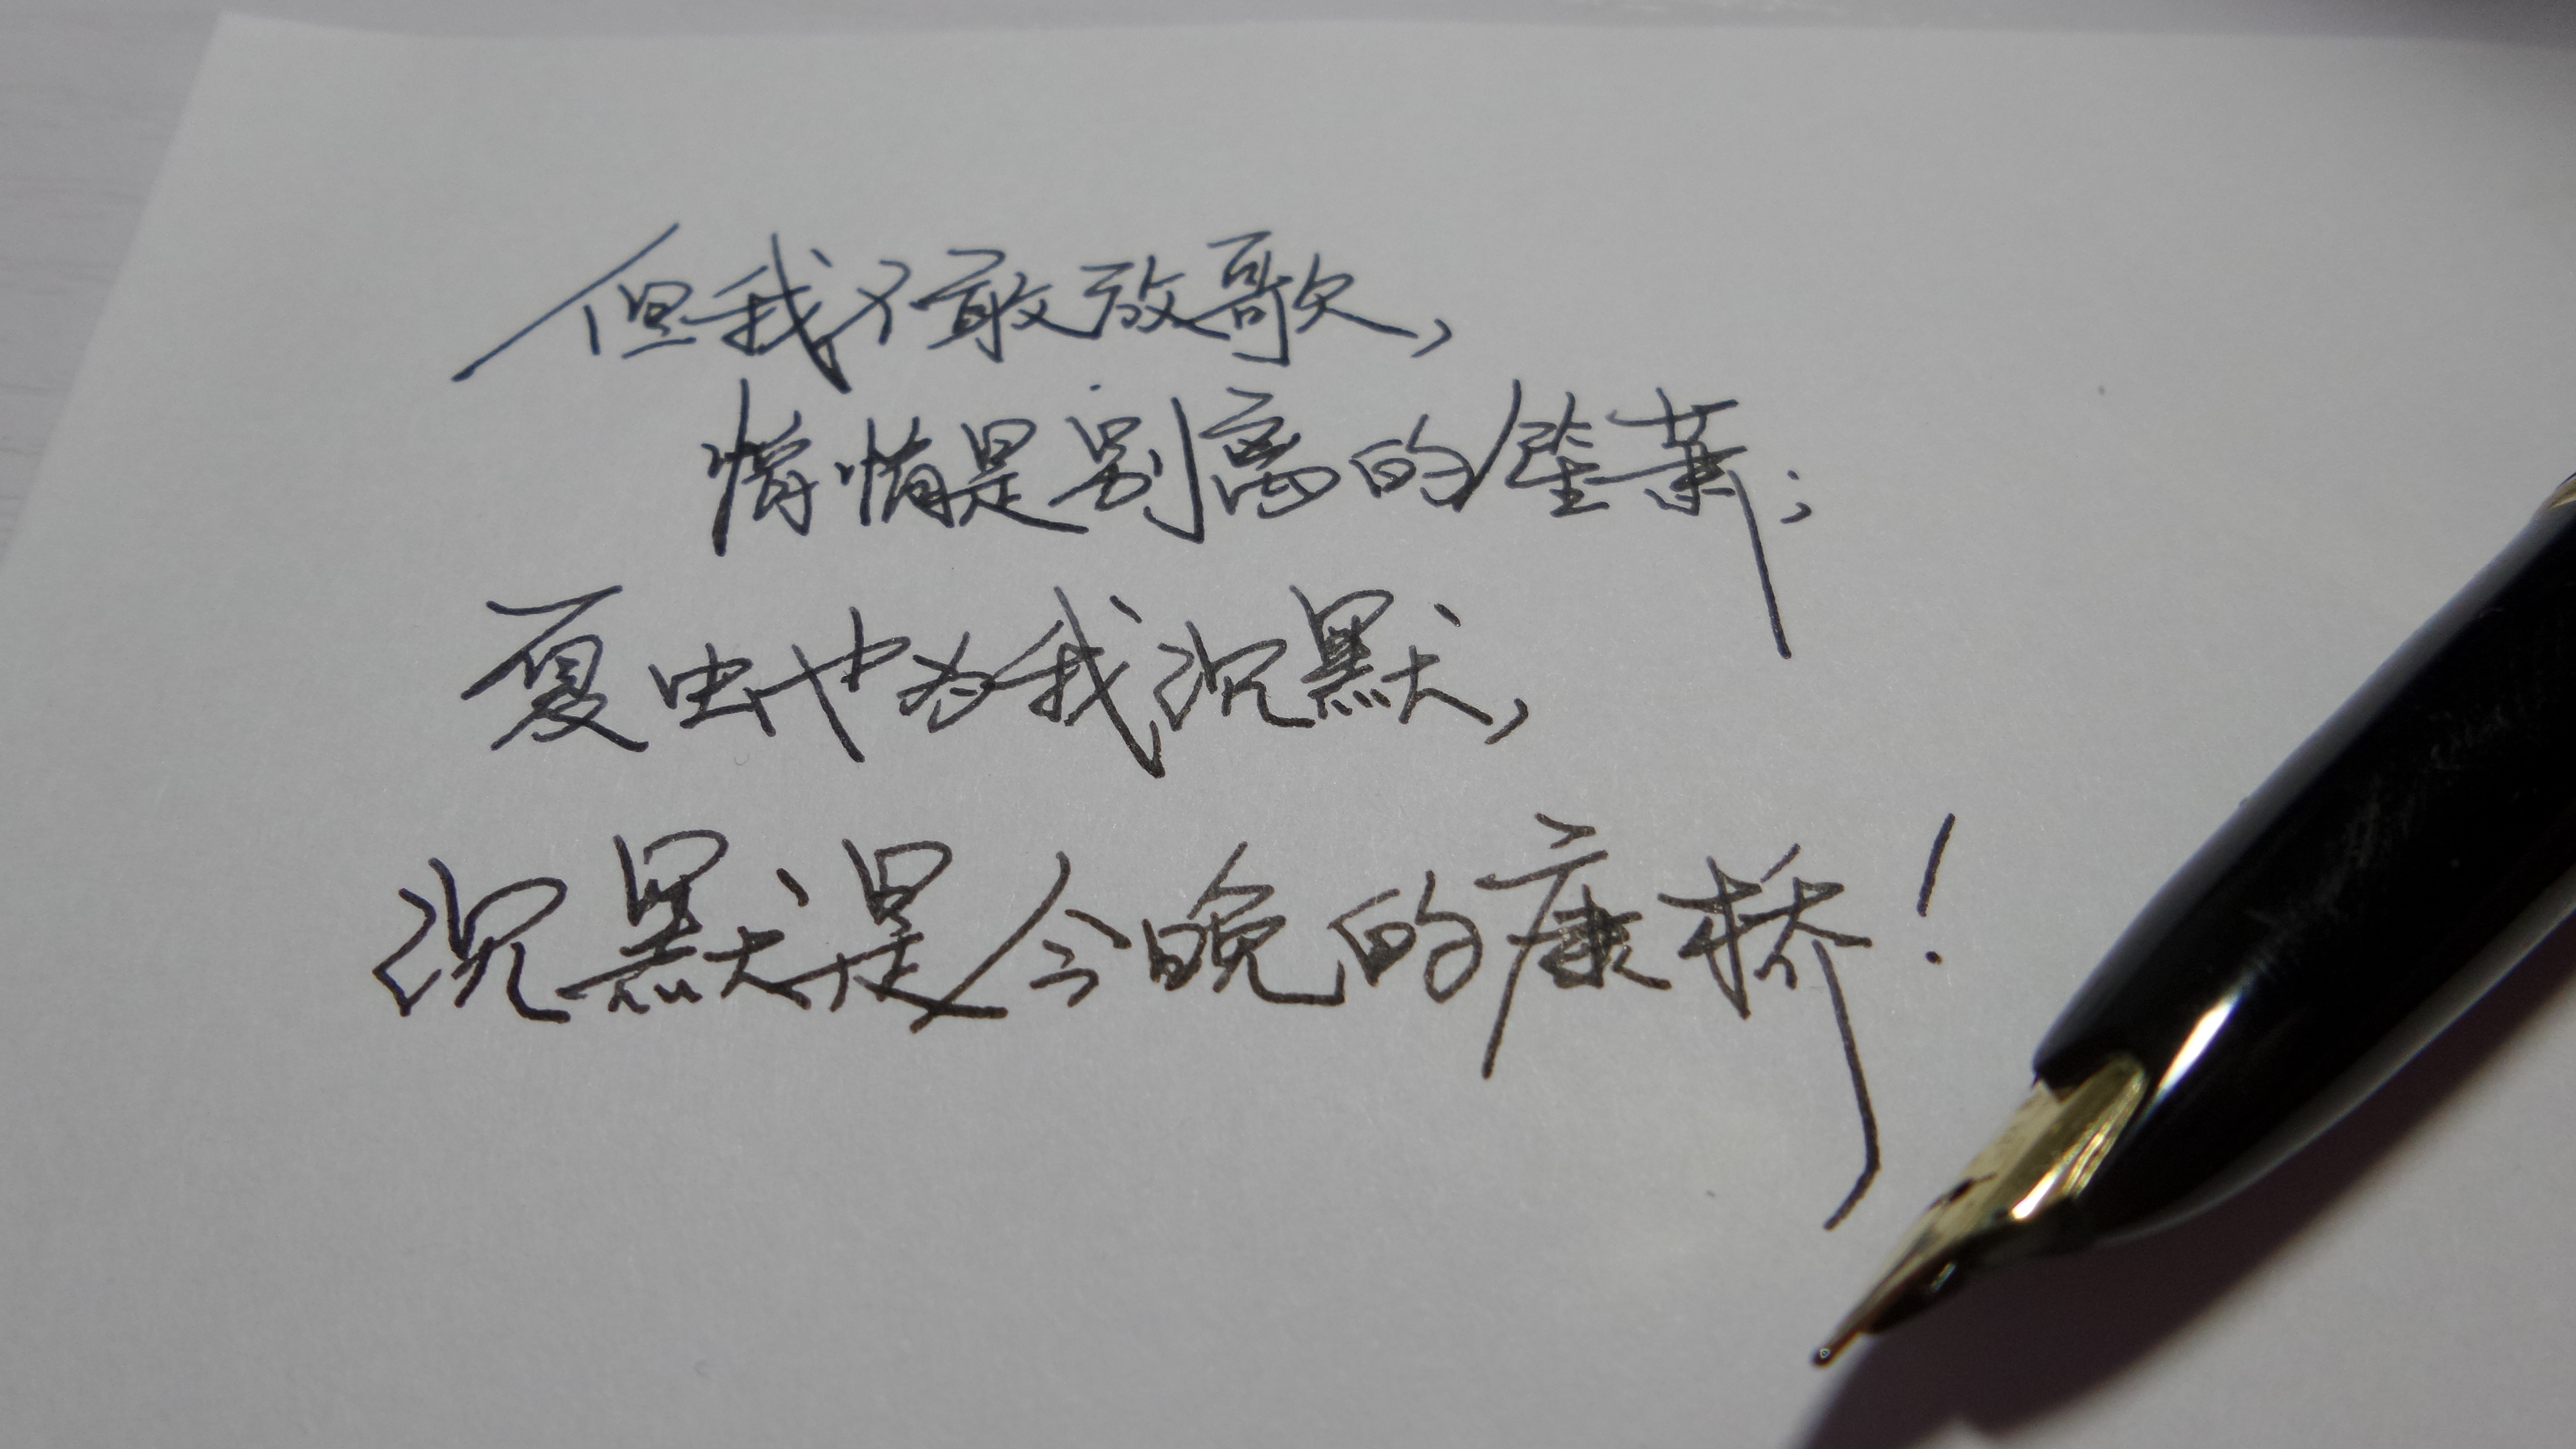 但我不敢放歌，
悄悄是别离的笙萧；
夏虫也为我沉默，
沉默是今晚的康桥！